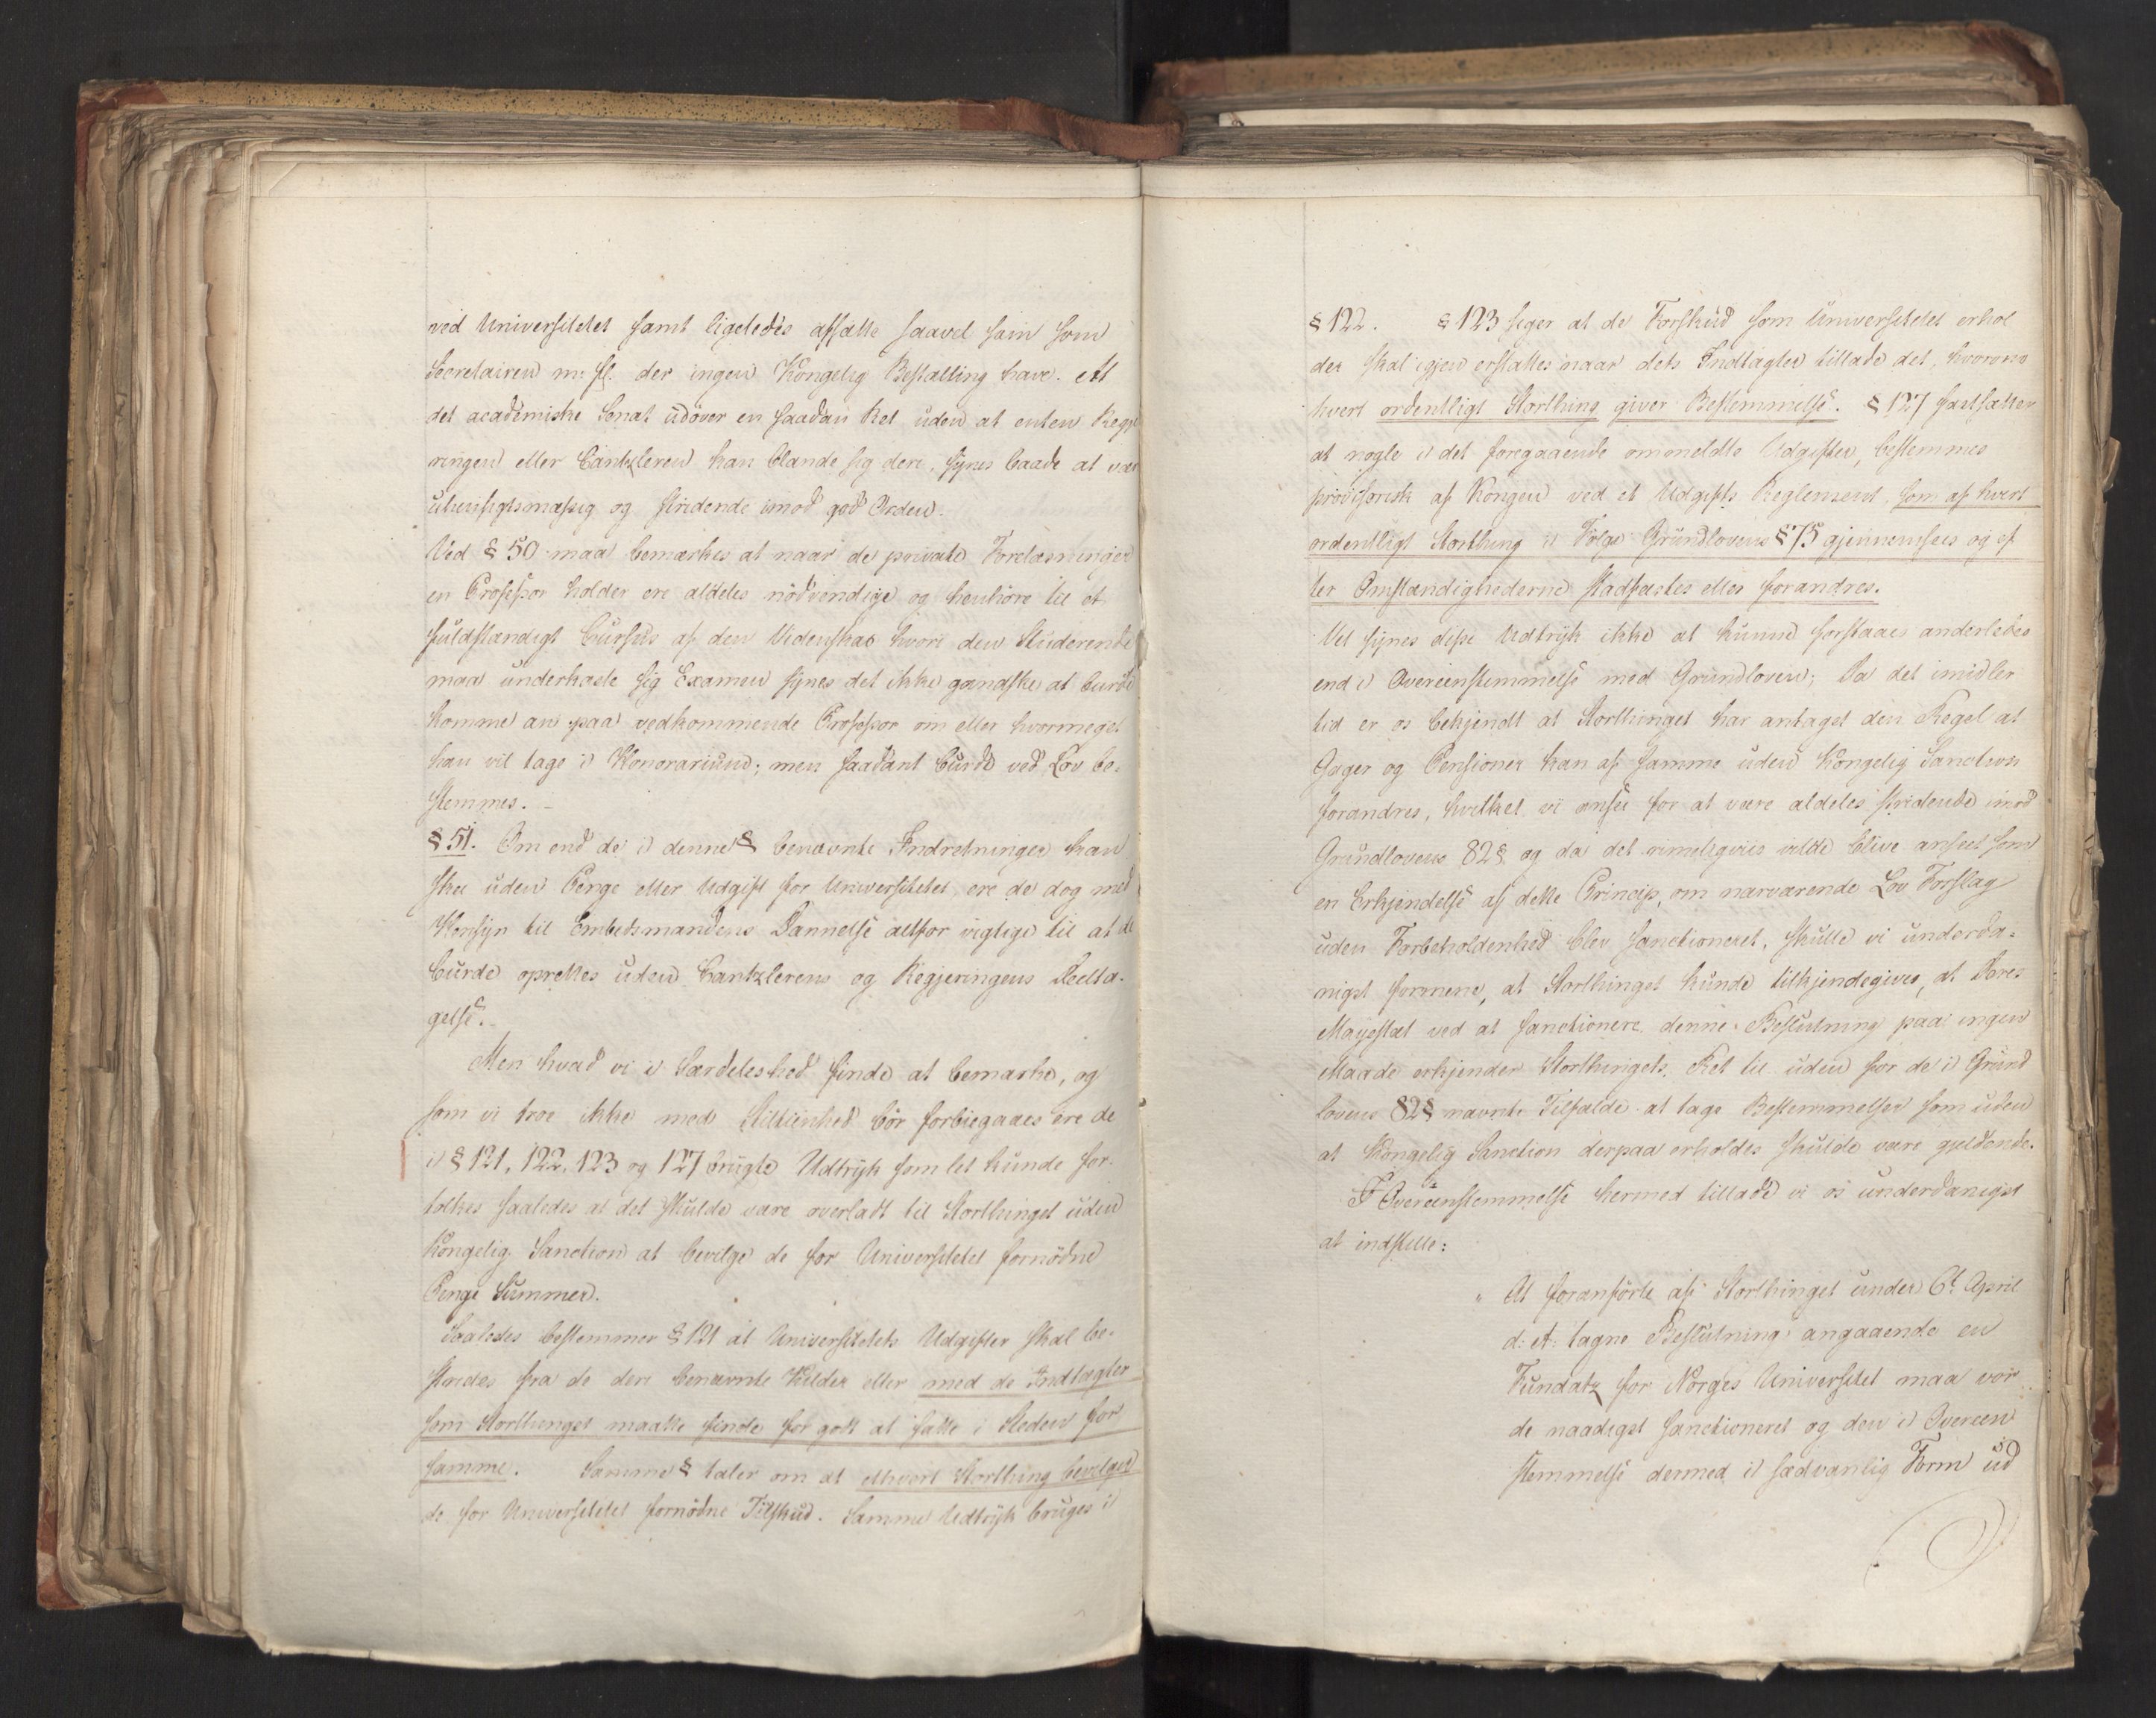 ved Universitetet samt ligeledes afsætte saavel ham som
Secretairen m: fl. der ingen Kongelig Bestalling have. At
det academiske Senat udöver en saadan Ret uden at enten Regje
ringen eller Cantzleren kan blande sig deri, synes baade at være
uhensigtsmæssig og stridende imod god Orden.
Ved § 50 maa bemærkes at naar de private Forelæsninger
en Professor holder ere aldeles nödvendige og henhöre til et
fuldstændigt Cursus af den Videnskab hvori den Studerende
maa underkaste sig Examen synes det ikke gandske at burde
komme an paa vedkommende Professor om eller hvormeget
han vil tage i Honorarium; men saadant burde ved Lov be-
stemmes. –
§ 51. Om end de i denne § benævnte Indretninger kan
skee uden Penge eller Udgift for Universitetet ere de dog med
Hensyn til Embedsmandens Dannelse altfor vigtige til at de
burde oprettes uden Cantzlerens og Regjeringens Deelta-
gelse. –
Men hvad vi i Særdeleshed finde at bemærke, og
som vi troe ikke med Stiltienhed bör forbiegaaes ere de
i § 121, 122, 123 og 127 brugte Udtryk som let kunde for-
tolkes saaledes at det skulde være overladt til Storthinget uden
Kongelig Sanction at bevilge de for Universitetet fornödne
Penge Summer.
Saaledes bestemmer § 121 at Universitetets Udgifter skal be-
strides fra de deri benævnte Kilder eller med de Indtægter
som Storthinget maatte finde for godt at sætte i Steden for
samme. Samme § taler om at ethvert Storthing bevilger
de for Universitetet fornödne Tilskud. Samme Udtryk bruges i
§ 122. § 123 siger at de Forskud som Universitetet erhol
der skal igjen erstattes naar dets Indtægter tillade det, hvorom
hvert ordentligt Storthing giver Bestemmelse. § 127 fastsætter
at nogle i det foregaaende ommeldte Udgifter, bestemmes
provisorisk af Kongen ved et Udgifts Reglement, som af hvert
ordentligt Storthing i Fölge Grundlovens § 75 gjennemsees og ef
ter Omstændighederne stadfæstes eller forandres.
Vel synes disse Udtryk ikke at kunne forstaaes anderledes
end i Overeenstemmelse med Grundloven; Da det imidler
tid er os bekjendt at Storthinget har antaget den Regel at
Gager og Pensioner kan af samme uden Kongelig Sanction
forandres, hvilket vi ansee for at være aldeles stridende imod
Grundlovens 82 § og da det rimeligviis vilde blive anseet som
en Erkjendelse af dette Princip, om nærværende Lov Forslag
uden Forbeholdenhed blev sanctioneret, skulle vi underda-
nigst formene, at Storthinget kunde tilkjendegives, at Deres
Majestæt ved at sanctionere denne Beslutning paa ingen
Maade erkjender Storthingets Ret til uden for de i Grund
lovens 82 § nævnte Tilfælde at tage Bestemmelser som uden
at Kongelig Sanction derpaa erholdes skulde være gjeldende.
I Overeenstemmelse hermed tillade vi os underdanigst
at indstille:
" At foranförte af Storthinget under 6t April
d: A: tagne Beslutning angaaende en
Fundatz for Norges Universitet maa vor
de naadigst sanctioneret og den i Overeen
stemmelse dermed i sædvanlig Form ud